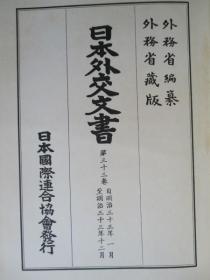 外務省編纂
外務省蔵版
日本外交文書
第三十二巻
自明治三十二年一月
至明治三十二年十二月
日本國際連合協會發行